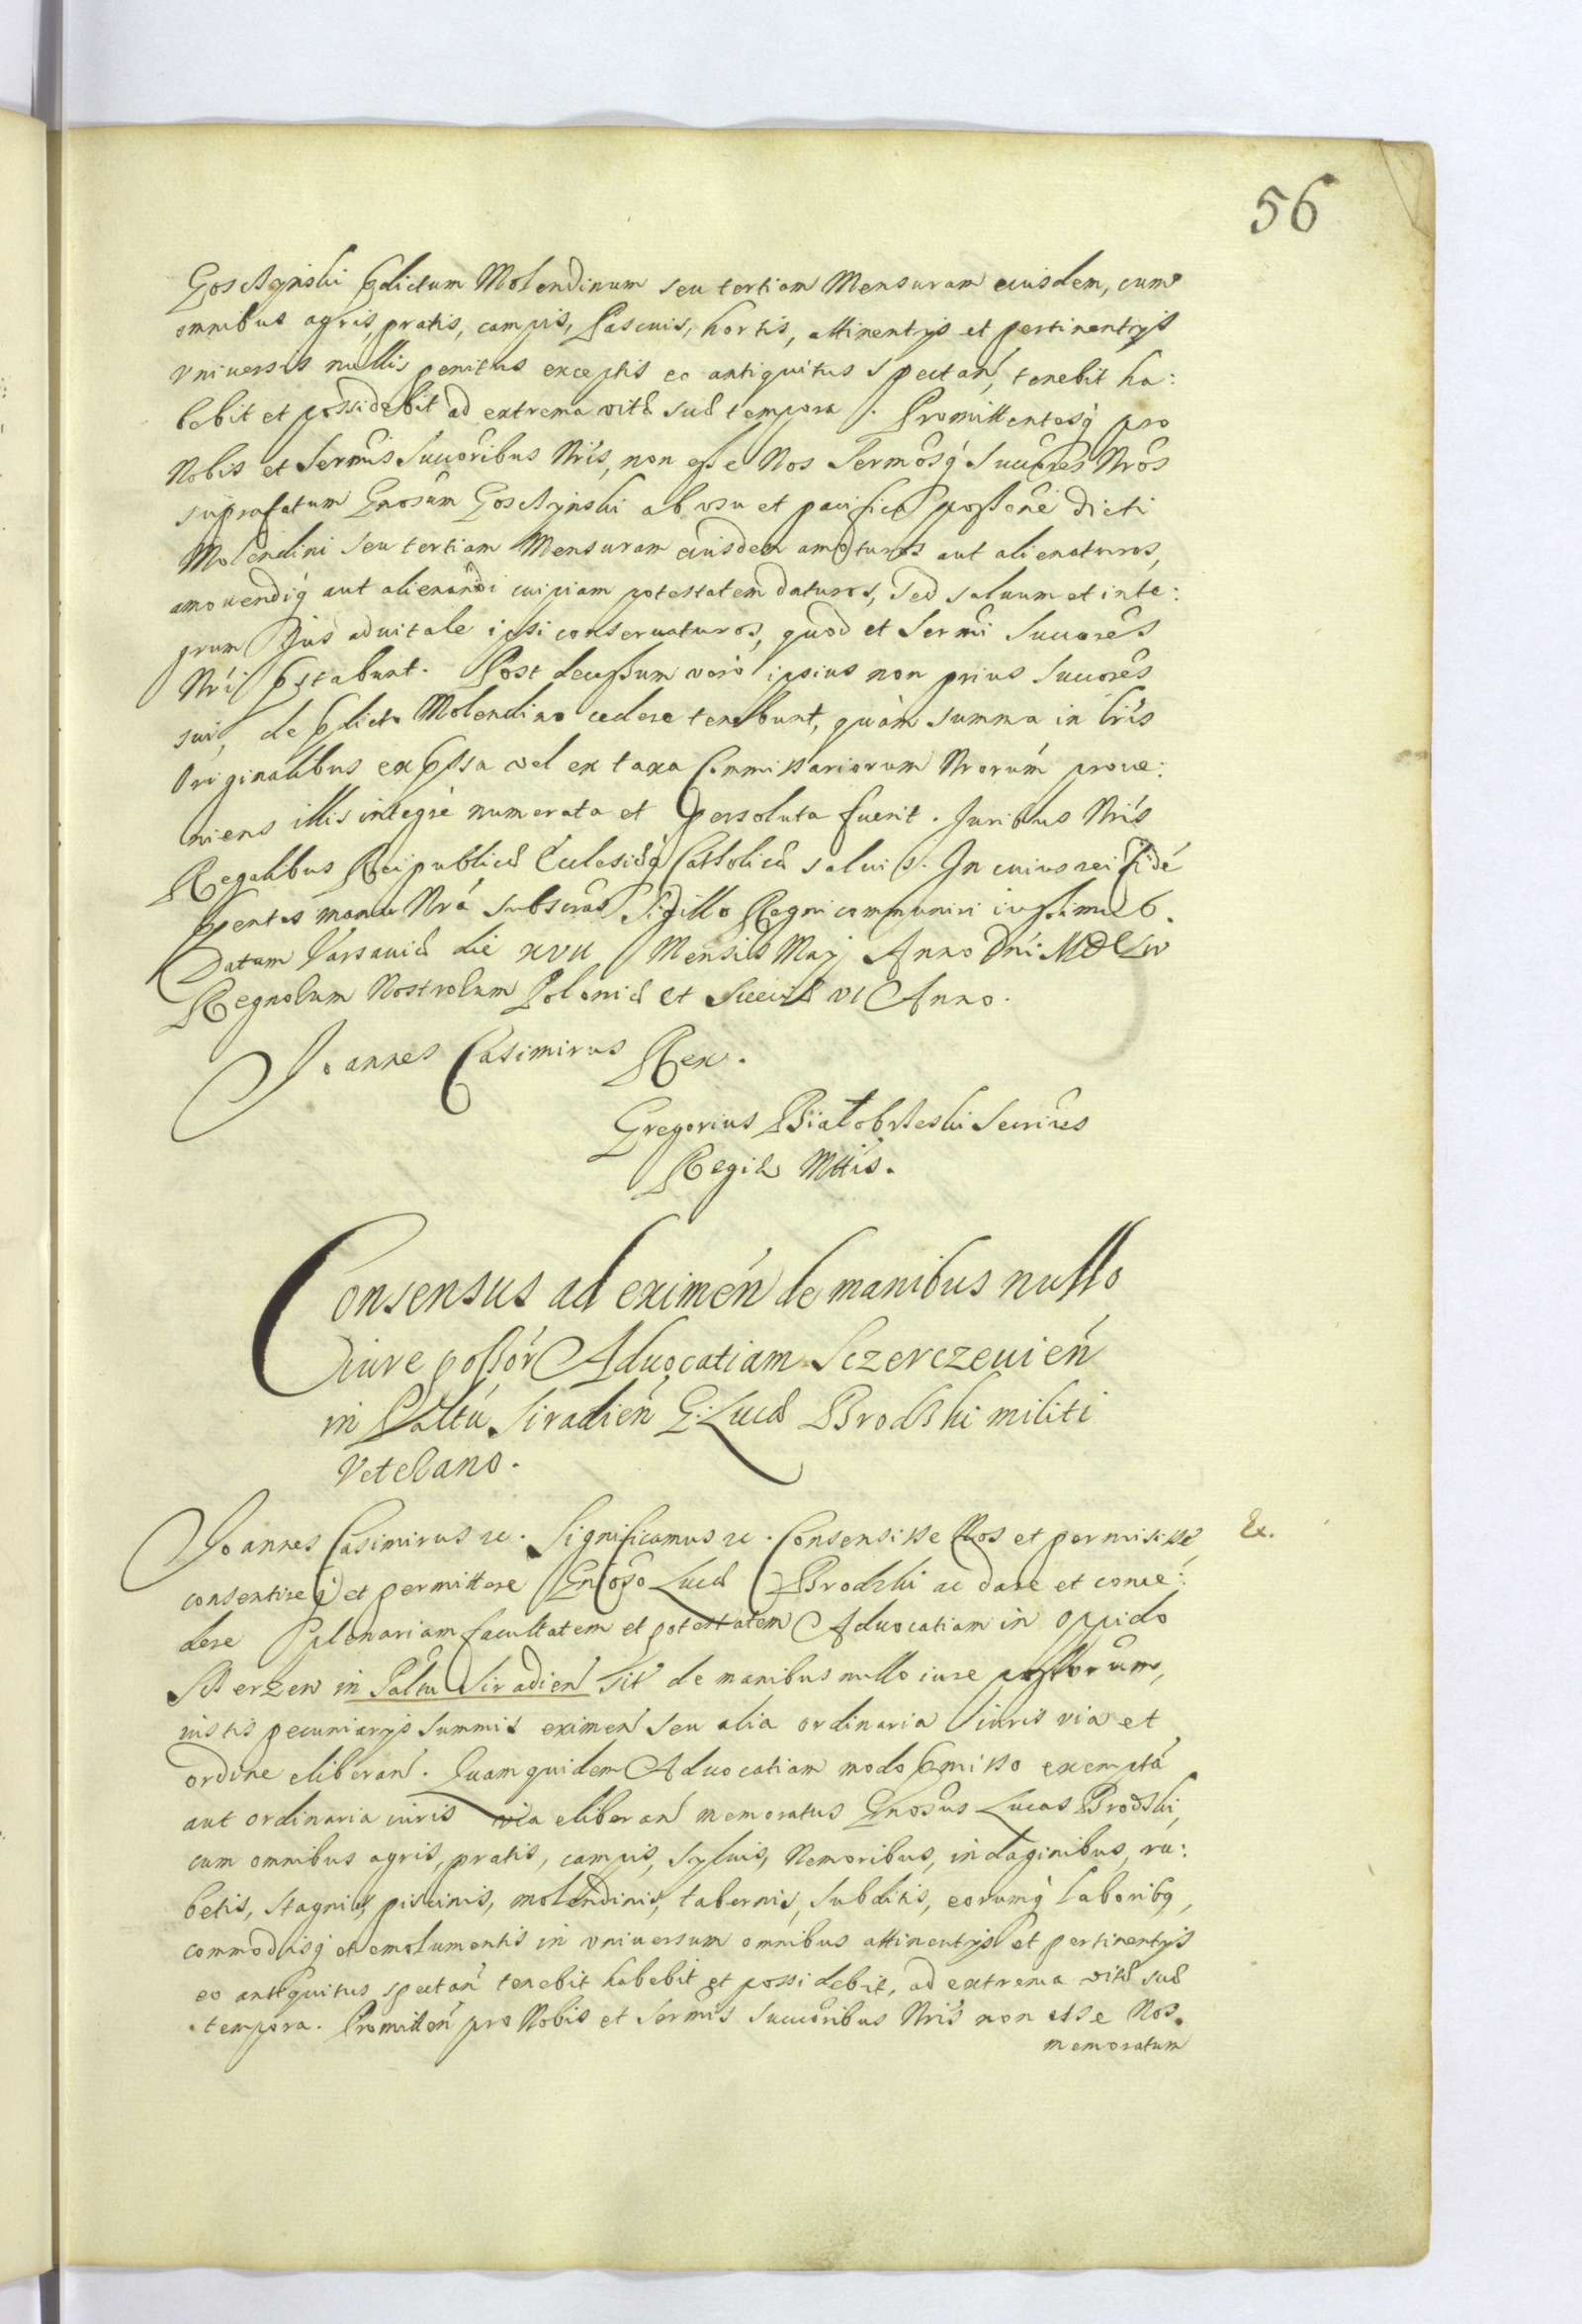 56
Goscżyński prdictum Molendinum seu tertiam Mensuram eiusdem, cum
omnibus agris, pratis, campis, Pascuis, hortis, attinentijs et pertinentijs
vniuersis nullis penitus exceptis eo antiquitus spectań, tenebit ha:
bebit et possidebit ad extrema vitæ suæ tempora. Promittentesq́ pro
Nobis et Sermis Succoribus Nris, non esse Nos Sermosq́ Succores Nros
suprafatum Gnosum Goscżyński ab vsu et pacifica possene dicti
Molendini seu tertiam Mensuram eiusdem amoturos aut alienaturos,
amouendiq́ aut alienandi cuipiam potestatem daturos, Sed saluum et inte:
grum Jus aduitale ipsi conseruaturos, quod et Sermi Succores
Nri pstabunt. Post decessum vero ipsius non prius Succores
sui, de pdicto Molendino cedere tenebunt, quàm summa in Lris
Originalibus expssa vel ex taxa Commissariorum Nrorum proue:
niens illis integrè numerata et persoluta fuerit. Juribus Nris
Regalibus Reipublicæ Ecclesiæq́ Catholicæ saluis. In cuius rei fidé
pentes manu Nrá subscras Sigillo Regni communiri iussimus.
Datum Varsauiæ die XVII Mensis Maij Anno Dni MDCLIV
Regnorum Nostrorum Poloniæ et Sueciæ VI Anno.
Joannes Casimirus Rex.
Gregorius Białobrzeski Secrius
Regiæ Mttis.
Consensus ad eximeń de manibus nullo
iure possor Aduocatiam Sczerczeuień
in Palttu Siradień G: Lucæ Brodzki militi
Veterano.
Joannes Casimirus &c. Significamus &c. Consensisse Nos et permisisse, &c.
consentireq́ et permittere Gnoso Lucæ Brodzki ac dare et conce:
dere Plenariam facultatem et potestatem Aduocatiam in oppido
Sczerzew in Paltu Siradień Sit de manibus nullo iure possorum,
iustis pecuniarijs summis eximeń seu alia ordinaria iuris via et
ordine eliberań. Quam quidem Aduocatiam modo pmisso exemptá
aut ordinaria iuris via eliberań memoratus Gnosus Lucas Brodzki,
cum omnibus agris, pratis, campis, syluis, Nemoribus, indaginibus, ru:
betis, stagnis, piscinis, molendinis, tabernis, subditis, eorumq́ laboribq,
commodisq́ et emolumentis in vniuersum omnibus attinentijs et pertinentijs
eo antiquitus spectań tenebit habebit et possidebit, ad extrema vitæ suæ
tempora. Promitteń pro Nobis et Sermis Succoribus Nris non esse Nos
memoratum